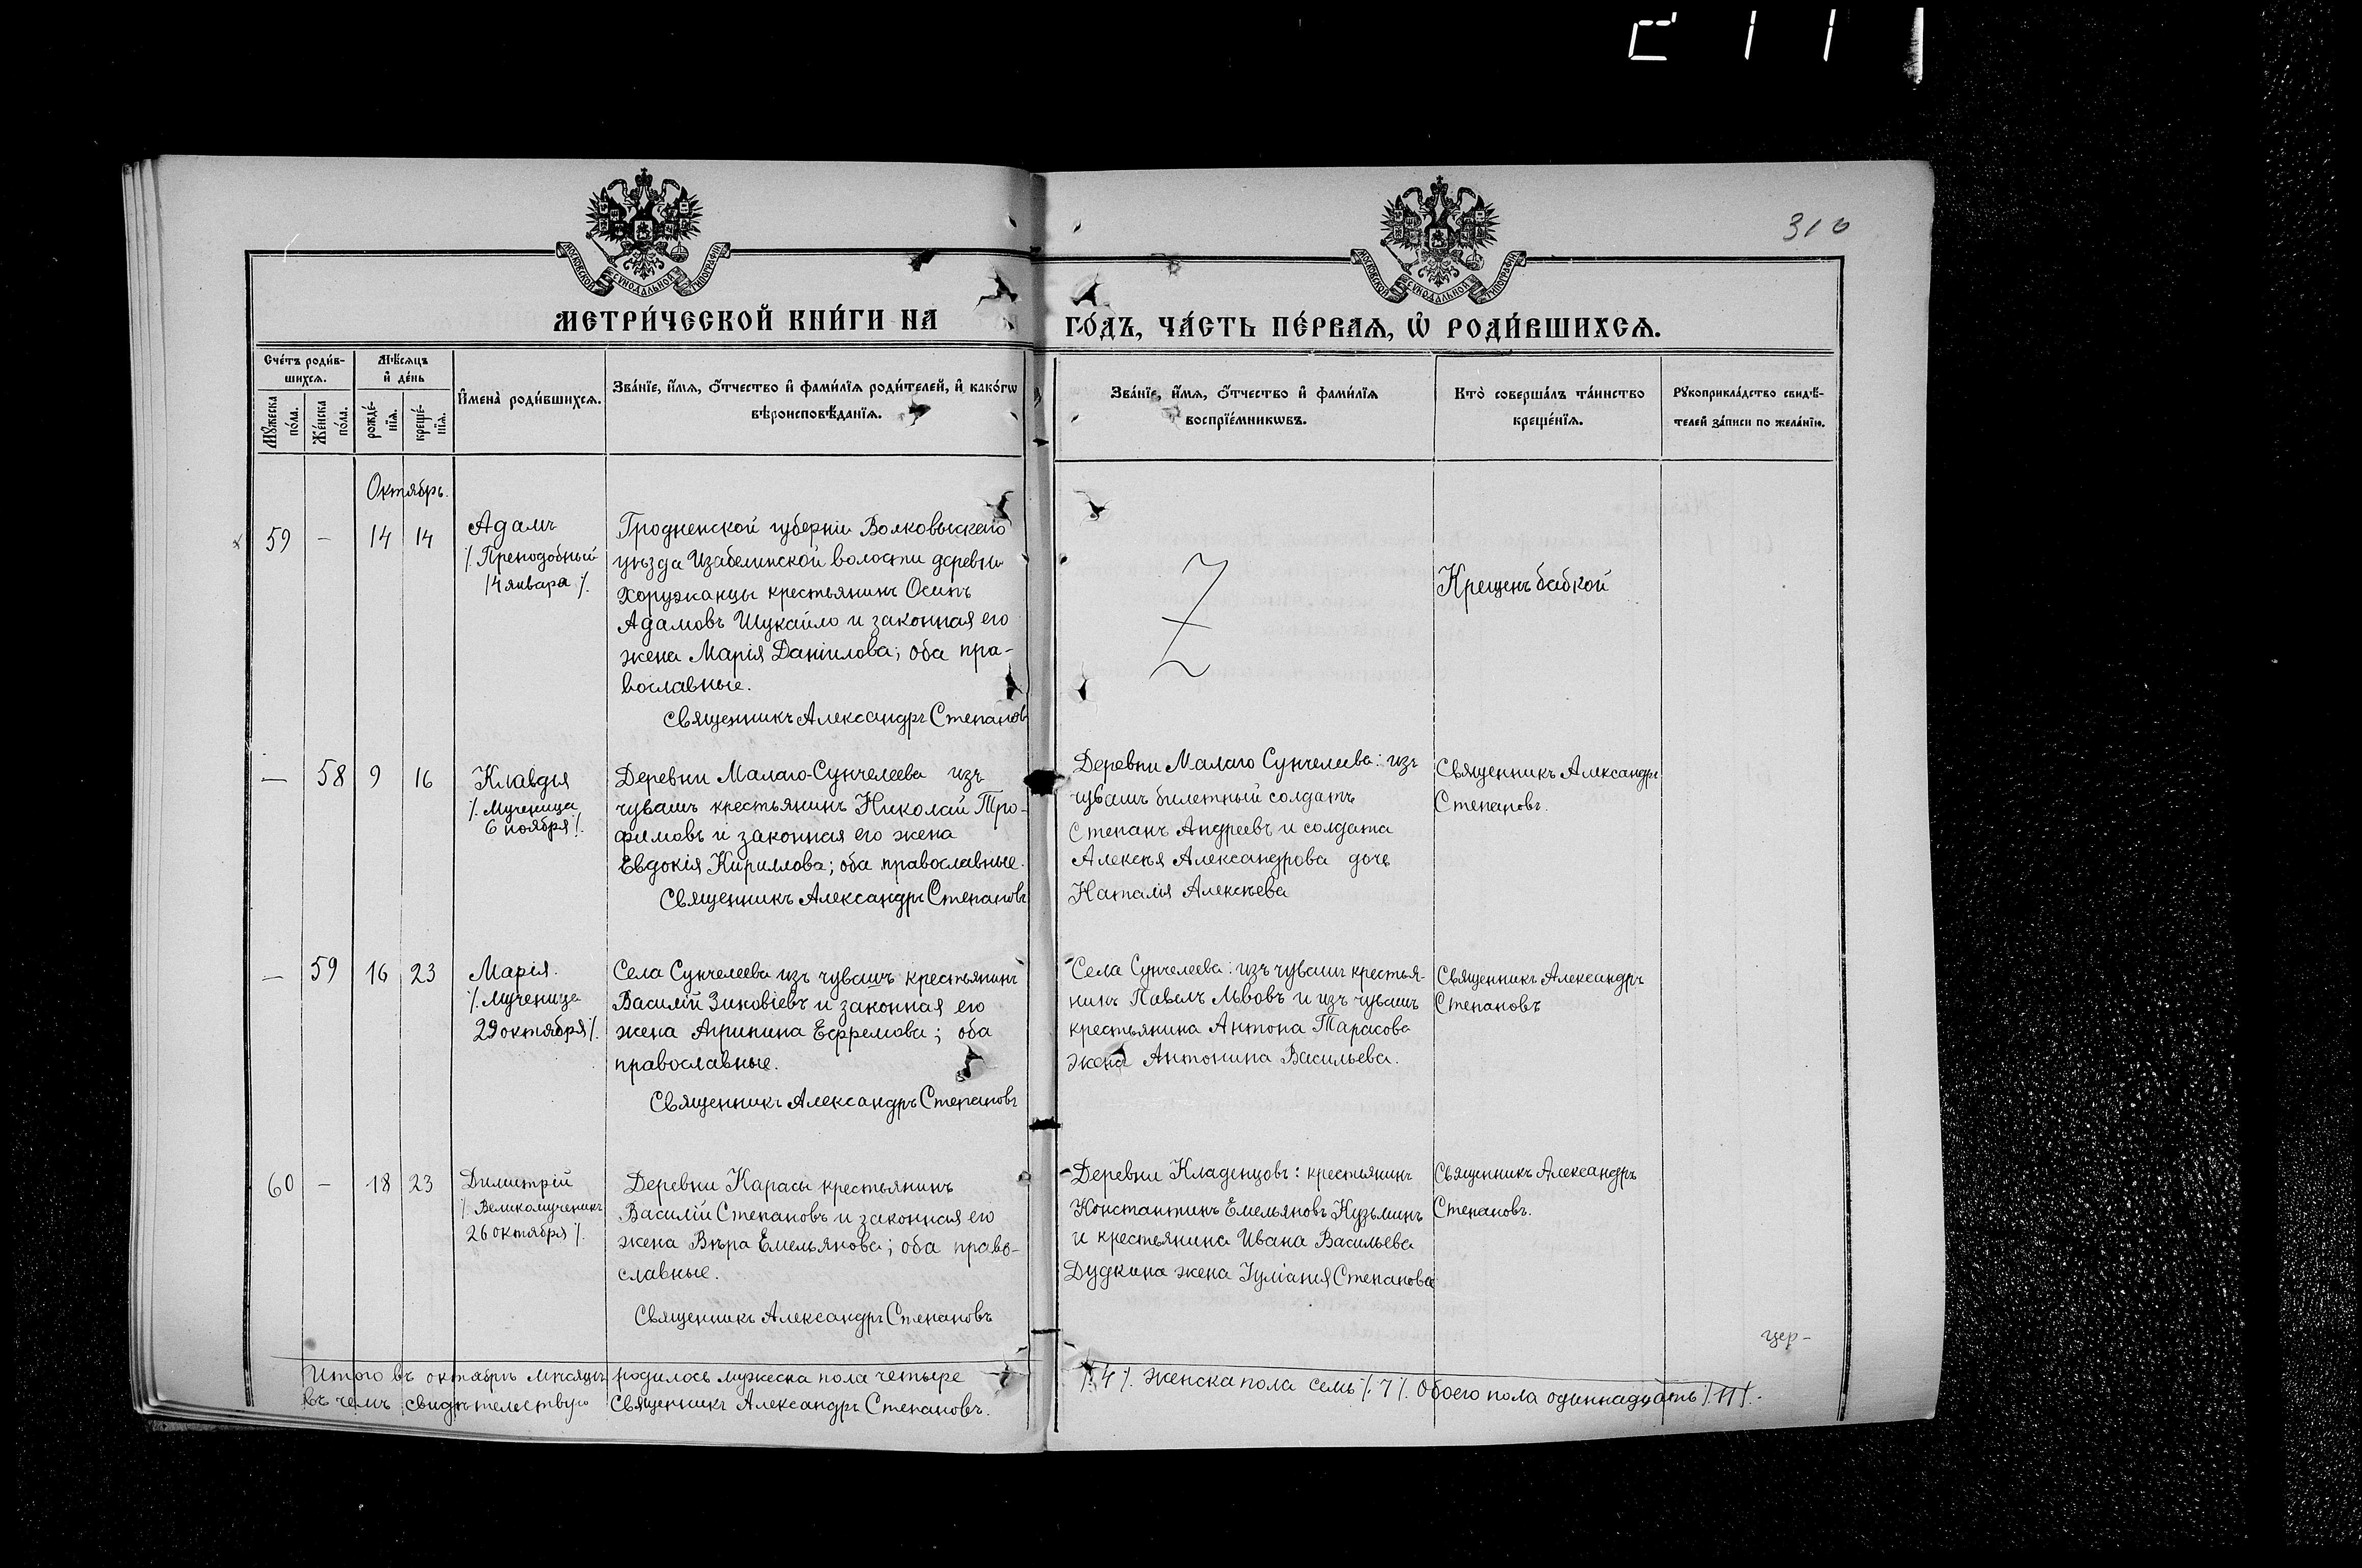 310
МОСКОВСКОЙ СѴНОДАЛЬНОЙ ТИПОГРАФІИ
МОСКОВСКОЙ СѴНОДАЛЬНОЙ ТИПОГРАФІИ
МЕТРИ́ЧЕСКОЙ КНИ́ГИ НА ГО́ДЪ, ЧА́СТЬ ПЕ́РВАѦ, Ѡ҆ РОДИ́ВШИХСѦ.
Сче́тъ роди́в-
шихсѧ.
Мꙋ́жеска
по́ла.
Же́нска
по́ла.
Мѣ́сѧцъ
и҆ де́нь
рожде́-
нїѧ.
креще́-
нїѧ.
И҆мена̀ роди́вшихсѧ.
Зва́нїе, и҆́мѧ, ѻ҆́тчество и҆ фами́лїѧ роди́телей, и҆ како́гѡ
вѣроисповѣ́данїѧ.
Зва́нїе, и҆́мѧ, ѻ҆́тчество и҆ фами́лїѧ
воспрїе́мникѡвъ.
Кто̀ соверша́лъ та́инство
креще́нїѧ.
Рꙋкоприкла́дство свидѣ́-
телей за́писи по жела́нїю.
Октябрь.
59 – 14 14
Адамъ
/. Преподобный
14 января /.
Гродненской губерніи Волковыскаго
уѣзда Изабелинской волости деревни
Хоружанцы крестьянинъ Осипъ
Адамовъ Шукайло и законная его
жена Марія Даніилова; оба пра-
вославные.
Священникъ Александръ Степановъ
Крещенъ бабкой
— 58 9 16
Клавдія
/. Мученица
6 ноября /.
Деревни Малаго-Сунчелеева изъ
чувашъ крестьянинъ Николай Тро-
фимовъ и законная его жена
Евдокія Кириллова; оба православные.
Священникъ Александръ Степановъ
Деревни Малаго Сунчелеева: изъ
чувашъ билетный солдатъ
Степанъ Андреевъ и солдата
Алексѣя Александрова дочь
Наталія Алексѣева
Священникъ Александръ
Степановъ.
— 59 16 23
Марія.
/. Мученица
29 октября /.
Села Сунчелеева изъ чувашъ крестьянинъ
Василій Зиновіевъ и законная его
жена Агрипина Ефремова; оба
православные.
Священникъ Александръ Степановъ
Села Сунчелеева: изъ чувашъ крестья-
нинъ Павелъ Львовъ и изъ чувашъ
крестьянина Антона Тарасова
жена Антонина Васильева.
Священникъ Александръ
Степановъ
60 – 18 23
Димитрій
/. Великомученикъ
26 октября /.
Деревни Карасы крестьянинъ
Василій Степановъ и законная его
жена Вѣра Емельянова; оба право-
славные.
Священникъ Александръ Степановъ
Деревни Кладенцовъ: крестьянинъ
Константинъ Емельяновъ Кузьминъ
и крестьянина Ивана Васильева
Дудкина жена Іуліанія Степанова
Священникъ Александръ
Степановъ.
цер-
Итого въ октябрѣ мѣсяцѣ родилось мужеска пола четыре /. 4 /. женска пола семь /. 7 /. Обоего пола одиннадцать /. 11 /.
въ чемъ свидѣтельствую Священникъ Александръ Степановъ.